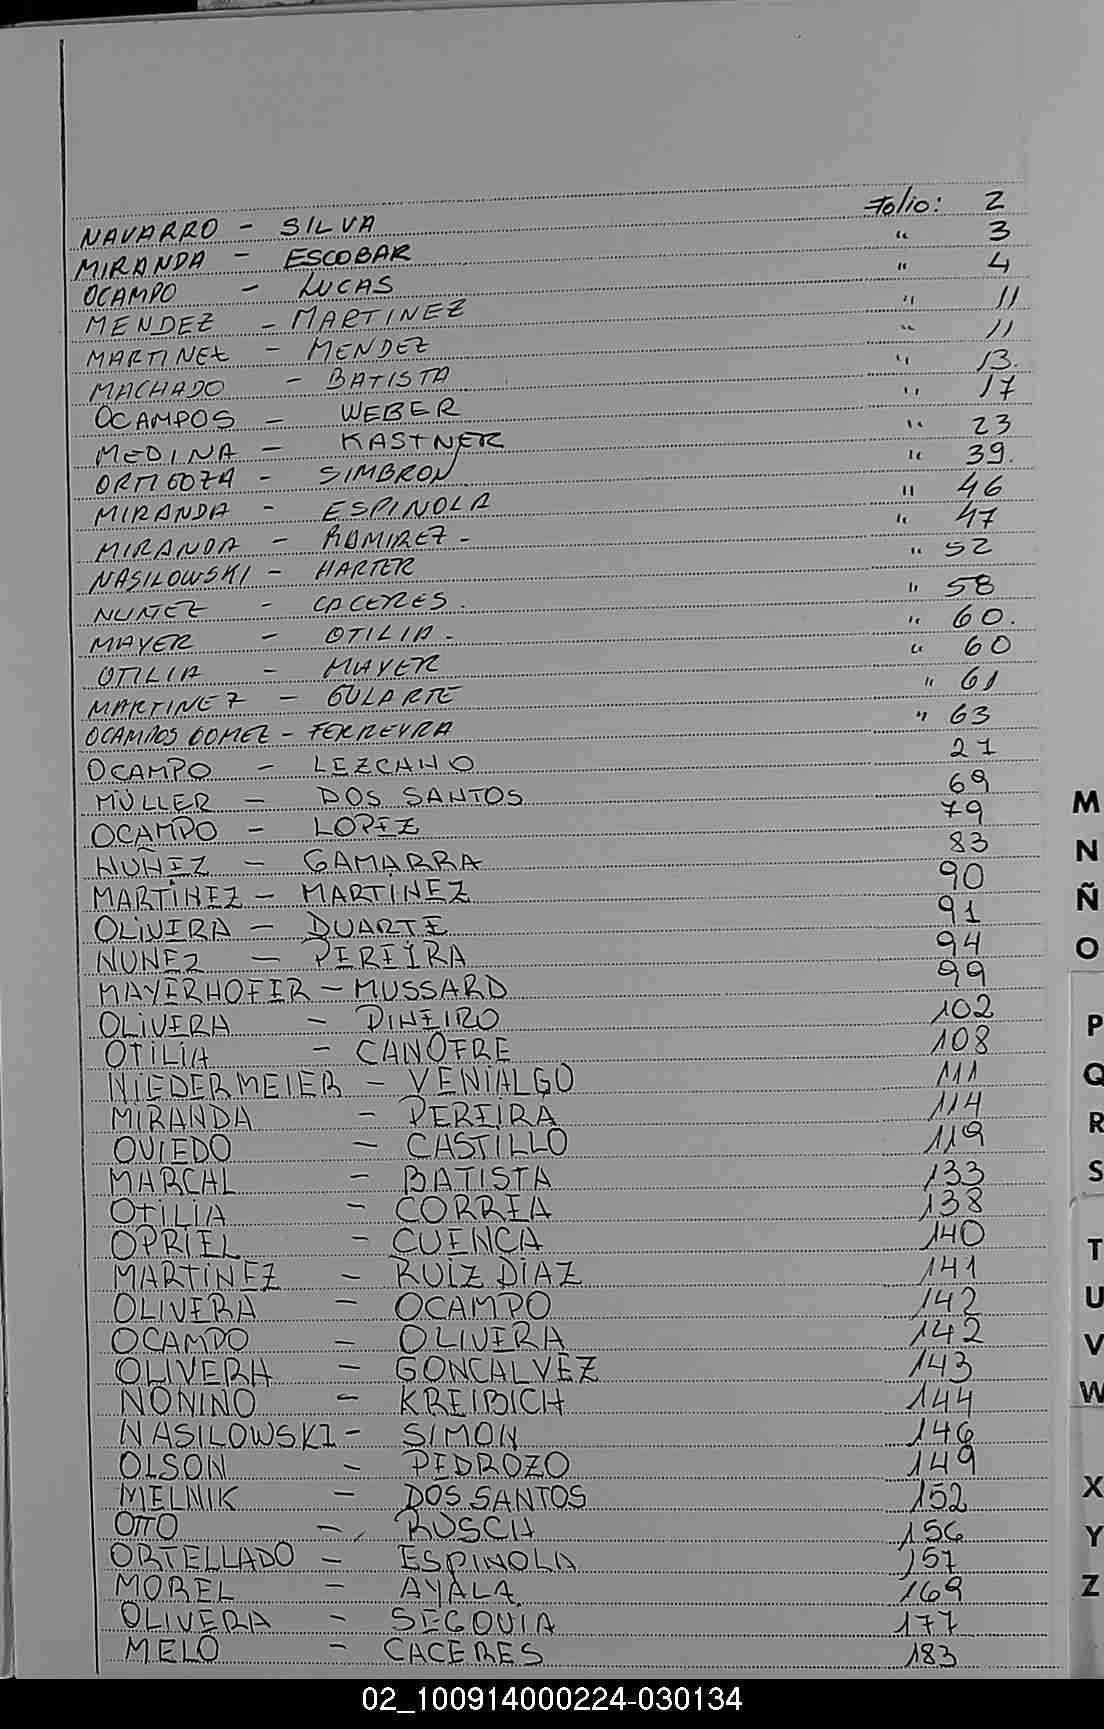 NAVARRO - SILVA Folio: 2
MIRANDA - ESCOBAR " 3
OCAMPO - LUCAS " 4
MENDEZ - MARTINEZ " 11
MARTINEZ - MENDEZ " 11
MACHADO - BATISTA " 13.
OCAMPOS - WEBER " 17
MEDINA - KASTNER " 23
ORTIGOZA - SIMBRON " 39.
MIRANDA - ESPINOLA " 46
MIRANDA - RAMIREZ - " 47
NASILOWSKI - HARTER " 52
NUÑEZ - CACERES. " 58
MAYER - OTILIA. " 60.
OTILIA - MAYER " 60
MARTINEZ - GULARTE " 61
OCAMPOS GOMEZ - FERREYRA " 63
OCAMPO - LEZCANO 27
MÜLLER - DOS SANTOS 69
OCAMPO - LOPEZ 79
NUÑEZ - GAMARRA 83
MARTÍNEZ - MARTINEZ 90
OLIVERA - DUARTE 91
NUNEZ - PEREIRA 94
MAYERHOFER - MUSSARD 99
OLIVERA - PINEIRO 102
OTILIA - CANOFRE 108
NIEDERMEIER - VENIALGO 111
MIRANDA - PEREIRA 114
OVIEDO - CASTILLO 119
MARCAL - BATISTA 133
OTILIA - CORREA 138
OPRIEL - CUENCA 140
MARTINEZ - RUIZ DIAZ 141
OLIVERA - OCAMPO 142
OCAMPO - OLIVERA 142
OLIVERA - GONCALVEZ 143
NONINO - KREIBICH 144
NASILOWSKI - SIMON 146
OLSON - PEDROZO 149
MELNIK - DOS SANTOS 152
OTTO - RUSCH 156
ORTELLADO - ESPINOLA 157
MOREL - AYALA 169
OLIVERA - SEGOVIA 177
MELO - CACERES 183
M
N
Ñ
O
P
Q
R
S
T
U
V
W
X
Y
Z
02_100914000224-030134